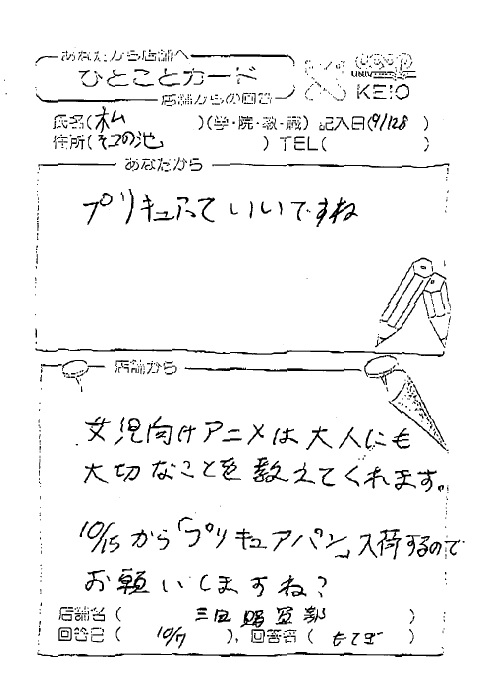 あなたから店舗へ
ひとことカード
店舗からの回答
UNIV. COOP
KEIO
氏名(私 )(学・院・教・職) 記入日(9/28 )
住所(そこの池 ) TEL( )
あなたから
プリキュアっていいですね
店舗から
女児向けアニメは大人にも
大切なことを教えてくれます。
10/15から「プリキュアパン」入荷するので
お願いしますね?
店舗名( 三田購買部 )
回答日( 10/7 ), 回答者( )